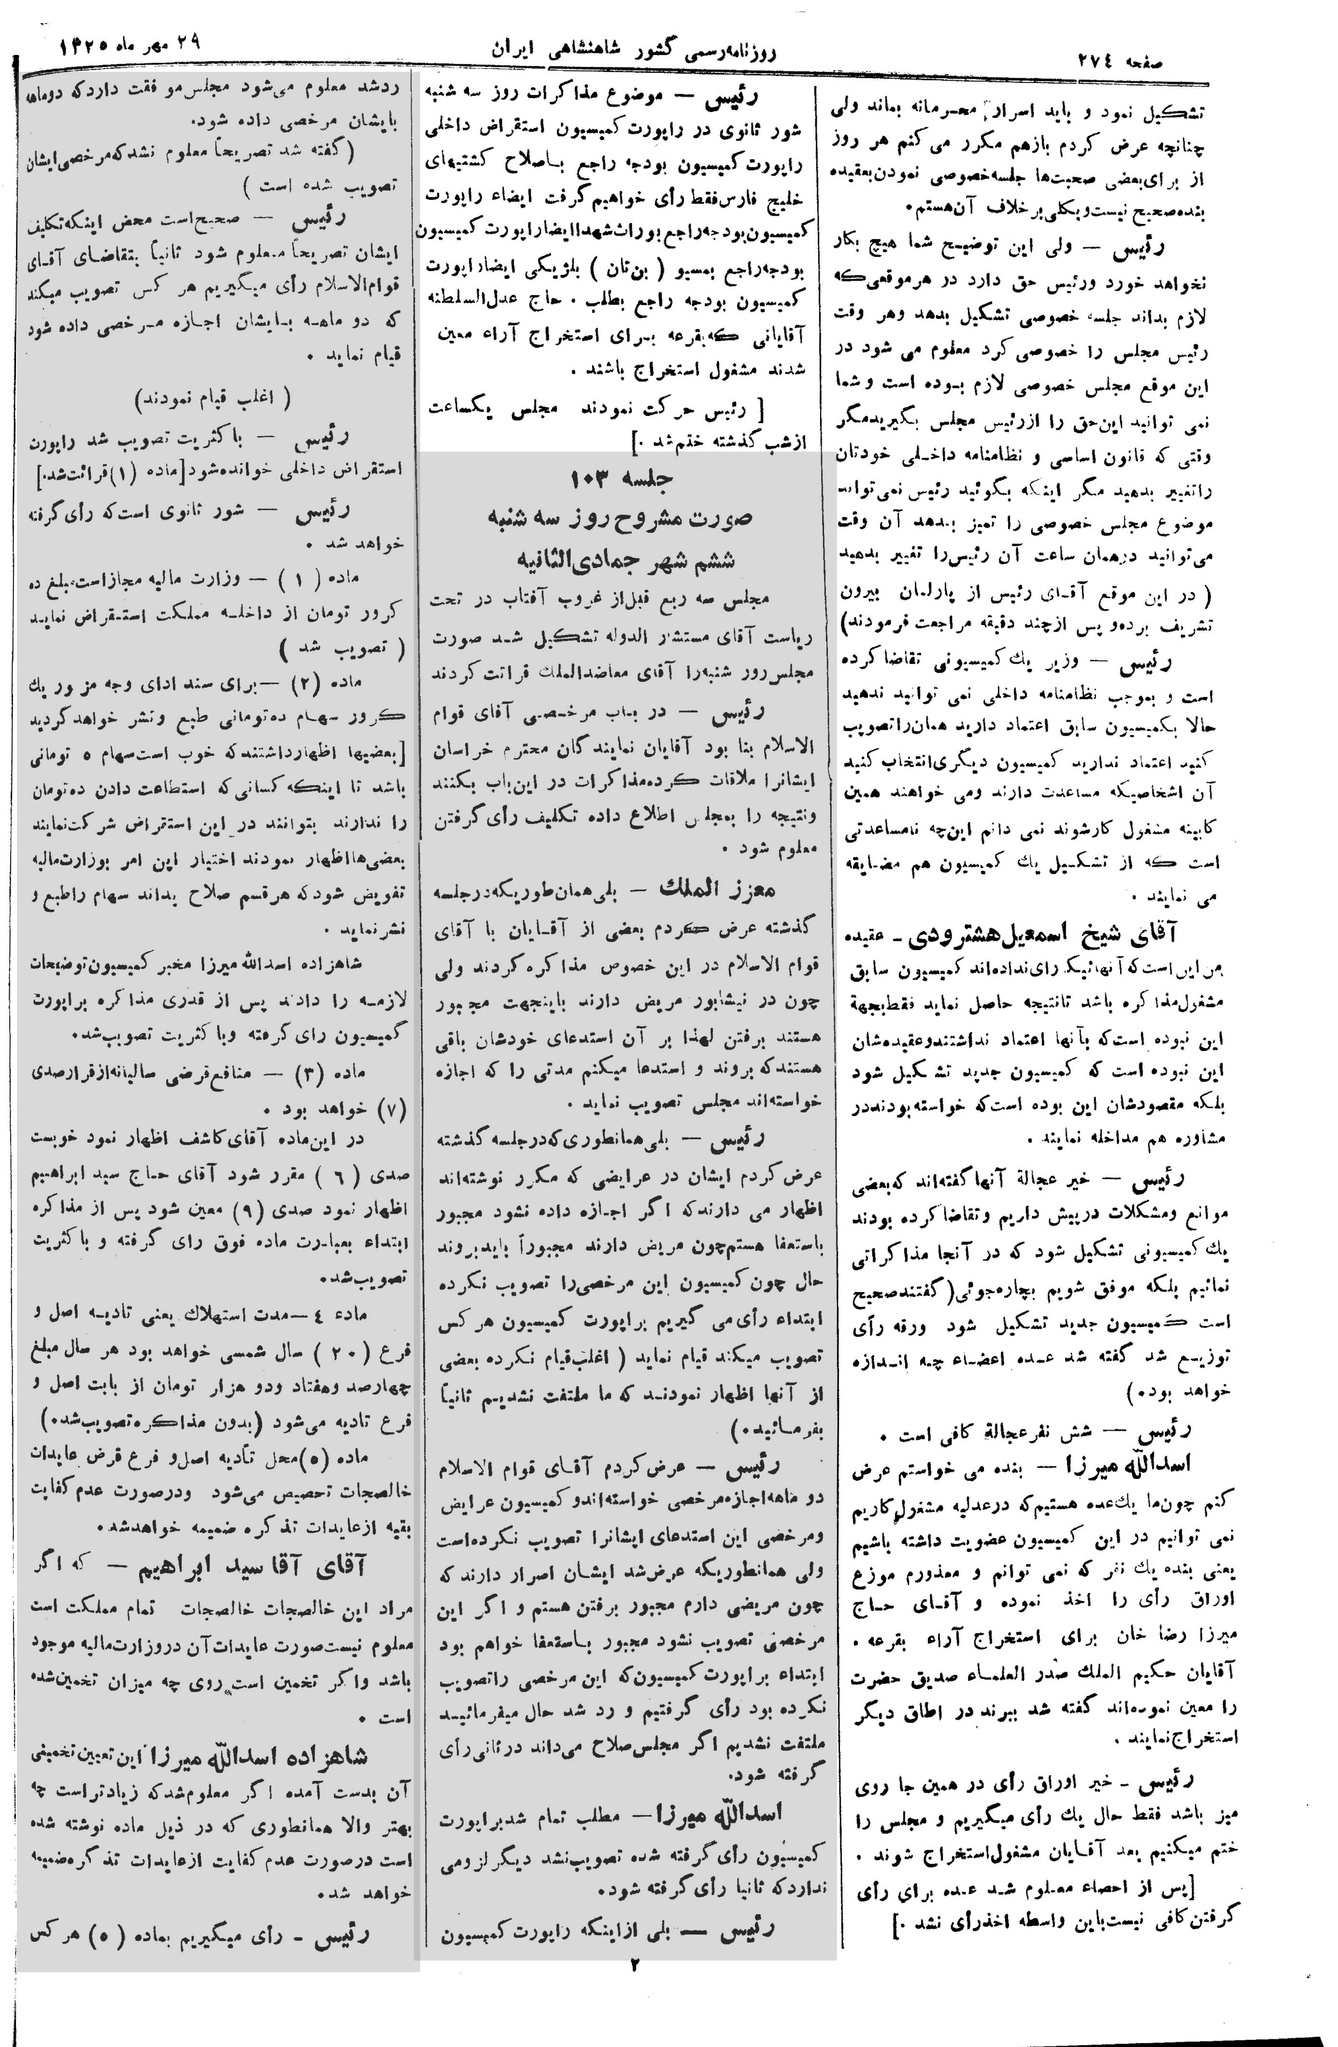 صفحه ۲۷٤
روزنامه رسمی کشور شاهنشاهی ایران
۲۹ مهر ماه ۱۳۲۵
تشکیل نمود و باید اسرار محرمانه بماند ولی
چنانچه عرض کردم بازهم مکرر می کنم هر روز
از برای بعضی صحبت‌ها جلسه خصوصی نمودن بعقیده
بنده صحیح نیست و بکلی بر خلاف آن هستم.
رئیس — ولی این توضیح شما هیچ بکار
نخواهد خورد و رئیس حق دارد در هر موقعی که
لازم بداند جلسه خصوصی تشکیل بدهد وهر وقت
رئیس مجلس را خصوصی کرد معلوم می شود در
این موقع مجلس خصوصی لازم بوده است و شما
نمی توانید این‌حق را از رئیس مجلس بگیرید مگر
وقتی که قانون اساسی و نظامنامه داخلی خودتان
را تغییر بدهید مگر اینکه بگوئید رئیس نمی تواند
موضوع مجلس خصوصی را تمیز بدهد آن وقت
می‌توانید در همان ساعت آن رئیس را تغییر بدهید
( در این موقع آقای رئیس از پارلمان بیرون
تشریف برده و پس از چند دقیقه مراجعت فرمودند)
رئیس — وزیر یك کمیسیونی تقاضا کرده
است و بموجب نظامنامه داخلی نمی توانید ندهید
حالا بکمیسیون سابق اعتماد دارید همان را تصویب
کنید اعتماد ندارید کمیسیون دیگری انتخاب کنید
آن اشخاصیکه مساعدت دارند و می خواهند همین
کابینه مشغول کار شوند نمی دانم این‌چه نامساعدتی
است که از تشکیل یك کمیسیون هم مضایقه
می نمایند .
آقای شیخ اسمعیل هشترودی – عقیده
من این است که آنهائیکه رای نداده‌اند کمیسیون سابق
مشغول مذاکره باشد تا نتیجه حاصل نماید فقط بجهة
این نبوده است که بآنها اعتماد نداشتند و عقیده‌شان
این نبوده است که کمیسیون جدید تشکیل شود
بلکه مقصودشان این بوده است که خواسته بودند در
مشاوره هم مداخله نمایند .
رئیس — خیر عجالة آنها گفته‌اند که بعضی
موانع و مشکلات در پیش داریم و تقاضا کرده بودند
یك کمیسیونی تشکیل شود که در آنجا مذاکراتی
نمائیم بلکه موفق شویم بچاره‌جوئی (گفتند صحیح
است کمیسیون جدید تشکیل شود ورقه رأی
توزیع شد گفته شد عده اعضاء چه اندازه
خواهد بود.)
رئیس — شش نفر عجالة کافی است .
اسدالله میرزا — بنده می خواستم عرض
کنم چون ما یك‌عده هستیم که در عدلیه مشغول کاریم
نمی توانیم در این کمیسیون عضویت داشته باشیم
یعنی بنده یك نفر که نمی توانم و معذورم موزع
اوراق رأی را اخذ نموده و آقای حاج
میرزا رضا خان برای استخراج آراء بقرعه .
آقایان حکیم الملك صدر العلماء صدیق حضرت
را معین نموده‌اند گفته شد ببرند در اطاق دیگر
استخراج نمایند .
رئیس – خیر اوراق رأی در همین جا روی
میز باشد فقط حال یك رأی میگیریم و مجلس را
ختم میکنیم بعد آقایان مشغول استخراج شوند .
[پس از احصاء معلوم شد عده برای رأی
گرفتن کافی نیست باین واسطه اخذ رأی نشد .]
رئیس — موضوع مذاکرات روز سه شنبه
شور ثانوی در راپورت کمیسیون استقراض داخلی
راپورت کمیسیون بودجه راجع باصلاح کشتیهای
خلیج فارس فقط رأی خواهیم گرفت ایضاء راپورت
کمیسیون بودجه راجع بوراث شهدا ایضا راپورت کمیسیون
بودجه راجع بمسیو ( بن‌تان ) بلژیکی ایضا راپورت
کمیسیون بودجه راجع بطلب . حاج عدل السلطنه
آقایانی که بقرعه برای استخراج آراء معین
شدند مشغول استخراج باشند .
[ رئیس حرکت نمودند مجلس یکساعت
از شب گذشته ختم شد .]
جلسه ۱۰۳
صورت مشروح روز سه شنبه
ششم شهر جمادی الثانیه
مجلس سه ربع قبل از غروب آفتاب در تحت
ریاست آقای مستشار الدوله تشکیل شد صورت
مجلس روز شنبه را آقای معاضد الملك قرائت کردند
رئیس — در باب مرخصی آقای قوام
الاسلام بنا بود آقایان نمایندگان محترم خراسان
ایشانرا ملاقات کرده مذاکرات در این باب بکنند
ونتیجه را بمجلس اطلاع داده تکلیف رأی گرفتن
معلوم شود .
معزز الملك — بلی همان طوریکه در جلسه
گذشته عرض کردم بعضی از آقایان با آقای
قوام الاسلام در این خصوص مذاکره کردند ولی
چون در نیشابور مریض دارند باینجهت مجبور
هستند برفتن لهذا بر آن استدعای خودشان باقی
هستند که بروند و استدعا میکنم مدتی را که اجازه
خواسته‌اند مجلس تصویب نماید .
رئیس — بلی همانطوری که در جلسه گذشته
عرض کردم ایشان در عرایضی که مکرر نوشته‌اند
اظهار می دارند که اگر اجازه داده نشود مجبور
باستعفا هستم چون مریض دارند مجبوراً باید بروند
حال چون کمیسیون این مرخصی را تصویب نکرده
ابتداء رأی می گیریم براپورت کمیسیون هر کس
تصویب میکند قیام نماید ( اغلب قیام نکرده بعضی
از آنها اظهار نمودند که ما ملتفت نشدیم ثانیاً
بفرمائید.)
رئیس — عرض کردم آقای قوام الاسلام
دو ماهه اجازه مرخصی خواسته‌اند و کمیسیون عرایض
ومرخصی این استدعای ایشانرا تصویب نکرده است
ولی همانطوریکه عرض شد ایشان اصرار دارند که
چون مریضی دارم مجبور برفتن هستم و اگر این
مرخصی تصویب نشود مجبور باستعفا خواهم بود
ابتداء براپورت کمیسیون که این مرخصی را تصویب
نکرده بود رأی گرفتیم و رد شد حال میفرمائید
ملتفت نشدیم اگر مجلس صلاح می‌داند در ثانی رأی
گرفته شود.
اسدالله میرزا — مطلب تمام شد براپورت
کمیسیون رأی گرفته شده تصویب نشد دیگر لزومی
ندارد که ثانیا رأی گرفته شود.
رئیس — بلی از اینکه راپورت کمیسیون
ردشد معلوم می‌شود مجلس موفقت دارد که دوماهه
بایشان مرخصی داده شود.
(گفته شد تصریحاً معلوم نشد که مرخصی ایشان
تصویب شده است )
رئیس — صحیح است محض اینکه تکلیف
ایشان تصریحاً معلوم شود ثانیاً بتقاضای آقای
قوام الاسلام رأی میگیریم هر کس تصویب میکند
که دو ماهه بایشان اجازه مرخصی داده شود
قیام نماید .
( اغلب قیام نمودند)
رئیس — باکثریت تصویب شد راپورت
استقراض داخلی خوانده شود [ماده (۱) قرائت شد.]
رئیس — شور ثانوی است که رأی گرفته
خواهد شد .
ماده (۱) — وزارت مالیه مجاز است بمبلغ ده
کرور تومان از داخله مملکت استقراض نماید
( تصویب شد )
ماده (۲) — برای سند ادای وجه مزبور یك
کرور سهام ده تومانی طبع و نشر خواهد گردید
[بعضیها اظهار داشتند که خوب است سهام ۵ تومانی
باشد تا اینکه کسانی که استطاعت دادن ده تومان
را ندارند بتوانند در این استقراض شرکت نمایند
بعضی‌ها اظهار نمودند اختیار این امر بوزارت مالیه
تفویض شود که هر قسم صلاح بداند سهام را طبع و
نشر نماید .
شاهزاده اسدالله میرزا مخبر کمیسیون توضیحات
لازمه را دادند پس از قدری مذاکره براپورت
کمیسیون رای گرفته و باکثریت تصویب شد.
ماده (۳) — منافع قرضی سالیانه از قرار صدی
(۷) خواهد بود .
در این ماده آقای کاشف اظهار نمود خوبست
صدی (٦) مقرر شود آقای حاج سید ابراهیم
اظهار نمود صدی (۹) معین شود پس از مذاکره
ابتداء بعبارت ماده فوق رای گرفته و باکثریت
تصویب شد.
ماده ٤ — مدت استهلاك یعنی تادیه اصل و
فرع (۲۰) سال شمسی خواهد بود هر سال مبلغ
چهارصد و هفتاد و دو هزار تومان از بابت اصل و
فرع تادیه می‌شود (بدون مذاکره تصویب شد.)
ماده (۵) محل تأدیه اصل و فرع قرض عایدات
خالصجات تخصیص می‌شود و در صورت عدم کفایت
بقیه از عایدات تذکره ضمیمه خواهد شد.
آقای آقا سید ابراهیم — که اگر
مراد این خالصجات خالصجات تمام مملکت است
معلوم نیست صورت عایدات آن در وزارت مالیه موجود
باشد و اگر تخمین است روی چه میزان تخمین شده
است .
شاهزاده اسدالله میرزا این تعیین تخمینی
آن بدست آمده اگر معلوم شد که زیادتر است چه
بهتر والا همانطوری که در ذیل ماده نوشته شده
است در صورت عدم کفایت از عایدات تذکره ضمیمه
خواهد شد.
رئیس – رأی میگیریم بماده (۵) هر کس
۲